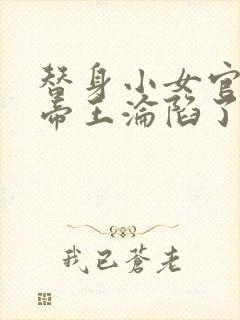 替身小女官
帝王淪陷了
我已蒼老